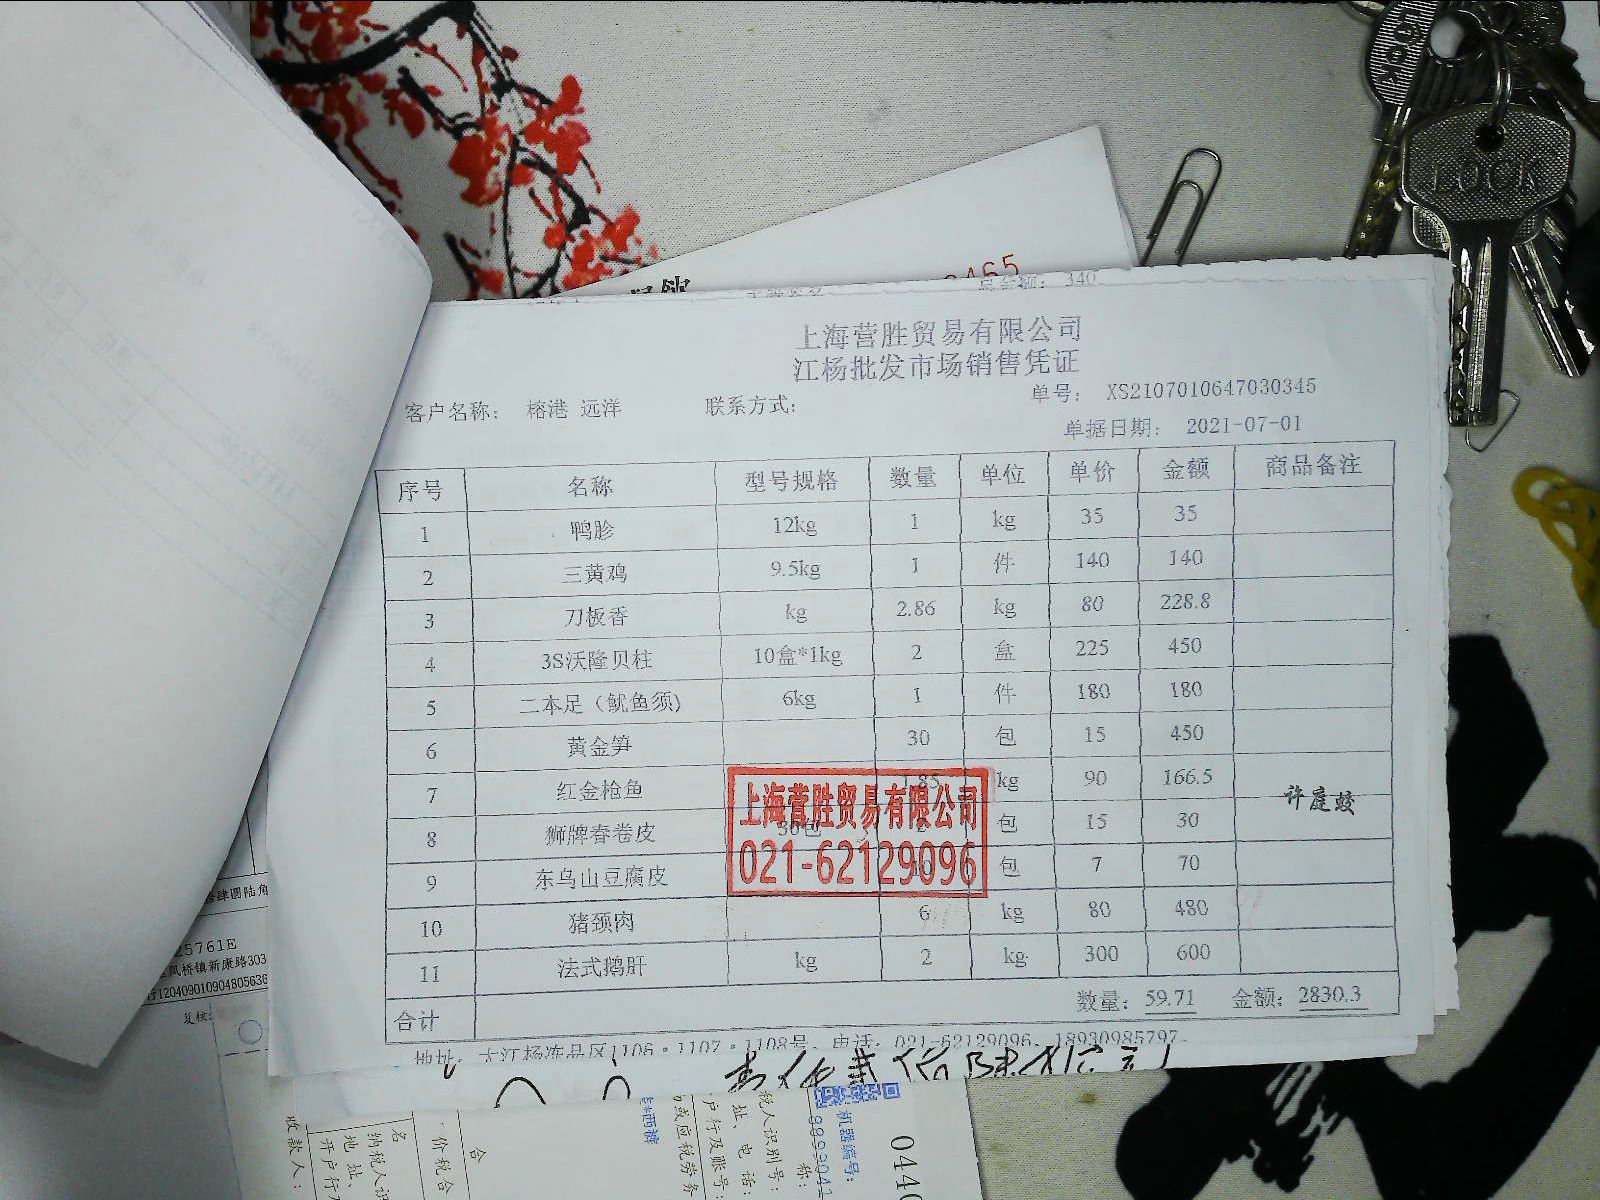 LOCK
总金额: 340
上海营胜贸易有限公司
江杨批发市场销售凭证
客户名称: 榕港 远洋 联系方式: 单号: XS2107010647030345
单据日期: 2021-07-01
序号 名称 型号规格 数量 单位 单价 金额 商品备注
1 鸭胗 12kg 1 kg 35 35
2 三黄鸡 9.5kg 1 件 140 140
3 刀板香 kg 2.86 kg 80 228.8
4 3S沃隆贝柱 10盒*1kg 2 盒 225 450
5 二本足（鱿鱼须) 6kg 1 件 180 180
6 黄金笋 30 包 15 450
7 红金枪鱼 1.85 kg 90 166.5
8 狮牌春卷皮 30包 2 包 15 30
9 东乌山豆腐皮 10 包 7 70
10 猪颈肉 6 kg 80 480
11 法式鹅肝 kg 2 kg 300 600
合计 数量: 59.71 金额: 2830.3
许庭蛟
上海营胜贸易有限公司
021-62129096
地址: 大江杨冻品区1106·1107·1108号 电话: 021-62129096、18930985797
25761E
凤桥镇新康路303
行120409010904805636
复核:
收款人:
开户行
地址、
纳税人识
名
价税合
合
或应税劳务
户行及账号:
址、电话:
税人识别号:
称:
机器编号: